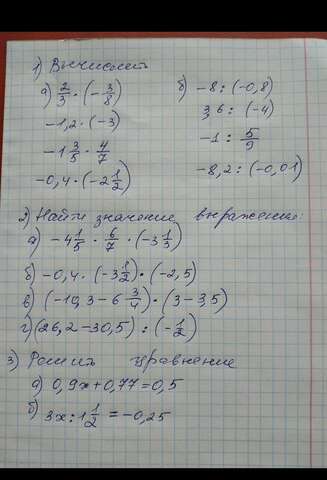 1) Вычислить
а) 2/3 · (-3/8)   б) -8 : (-0,8)
-1,2 · (-3)   3,6 : (-4)
-1 3/5 · 4/7   -1 : 5/9
-0,4 · (-2 1/2)   -8,2 : (-0,01)
2) Найти значение выражения:
а) -4 1/5 · 6/7 · (-3 1/3)
б) -0,4 · (-3 1/2) · (-2,5)
в) (-10,3 - 6 3/4) · (3 - 3,5)
г) (26,2 - 30,5) : (-1/2)
3) Решить уравнение
а) 0,9x + 0,77 = 0,5
б) 3x : 1 1/2 = -0,25